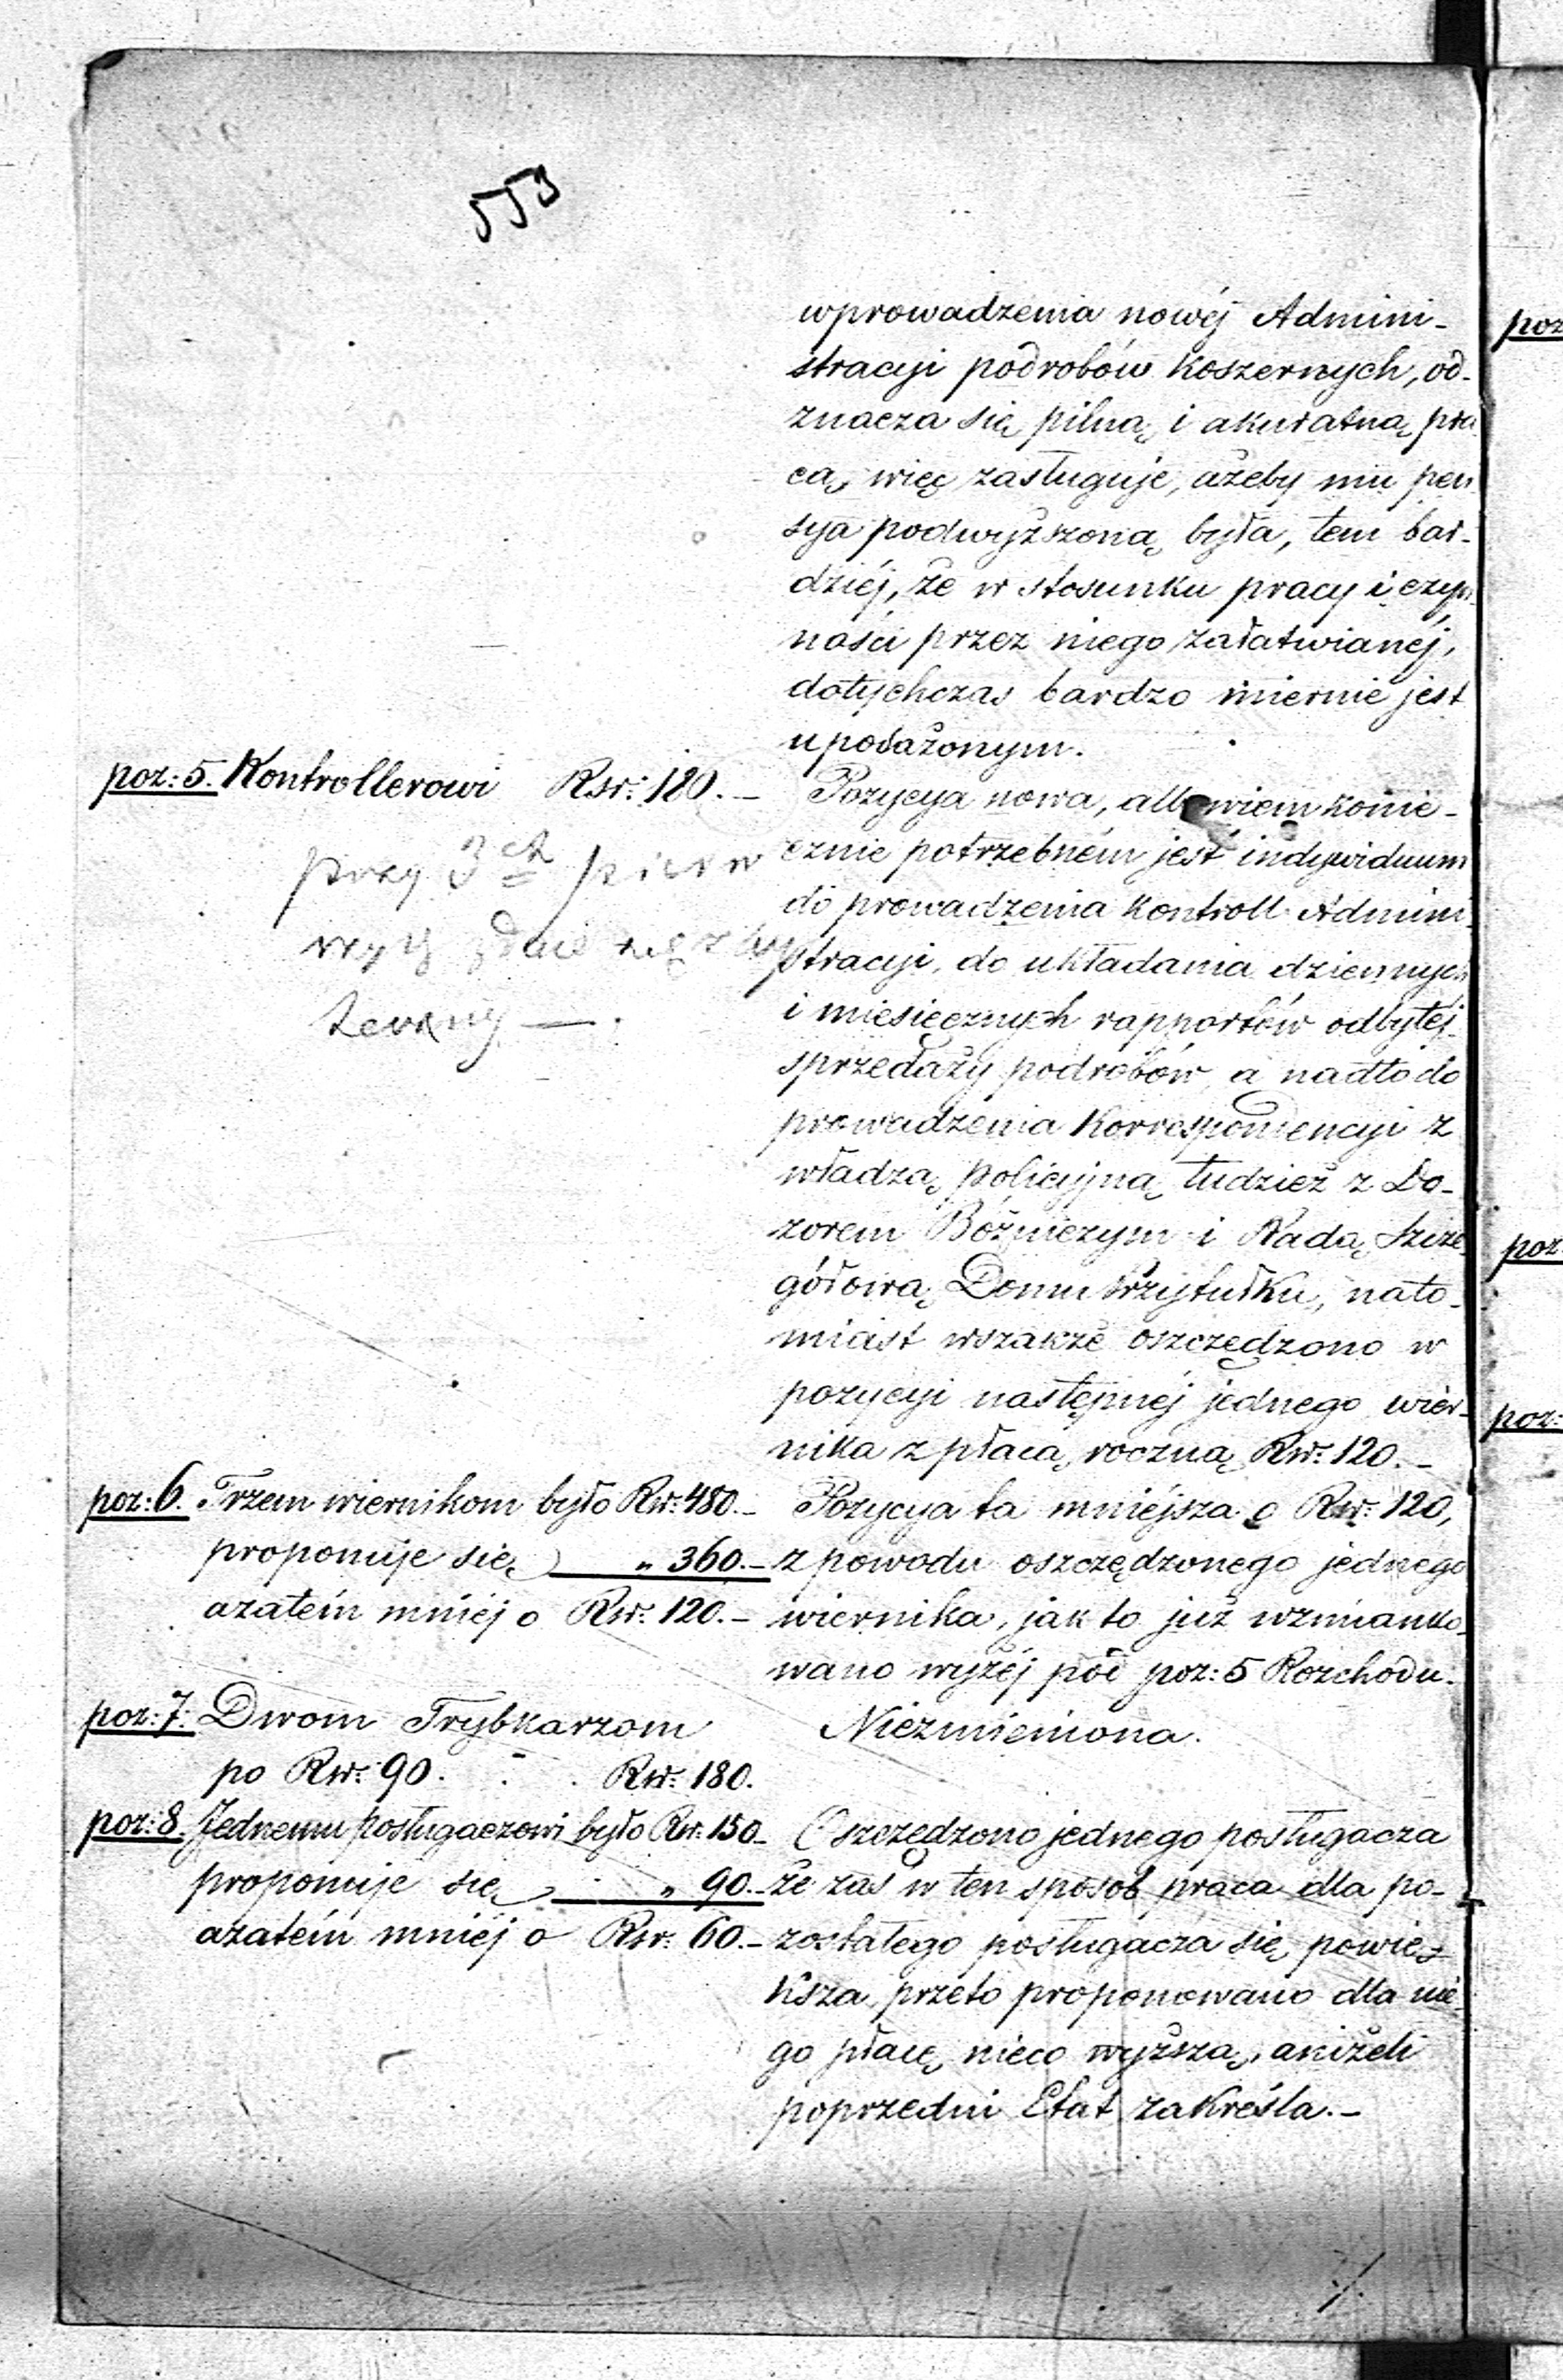 553
wprowadzenia nowéj Admini-
stracyi podrobów koszernych, od-
znacza się pilną i akuratną pra
cą, więc zasługuje, ażeby mu pen
sya podwyższoną była, tem bar-
dziéj, że w stosunku pracy i czyn
ności przez niego załatwianéj,
dotychczas bardzo miernie jest
uposażonym.
poz: 5. Kontrollerowi Rsr: 180.—
Pozycya nowa, albowiem konie-
cznie potrzebném jest indywiduum
do prowadzenia kontroll Admini
stracyi, do układania dziennych
i miesięcznych rapportów odbytéj
sprzedaży podrobów, a nadto do
prowadzenia Korrespondencyi z
władzą policyjną tudzież z Do-
zorem Bóżniczym i Radą Szcze
gółową Domu Przytułku, nato-
miast wszakże oszczędzono w
pozycyi następnéj jednego wier-
nika z płacą roczną Rsr: 120.—
przy 3ch pierw
szych zdaje się
poz: 6. Trzem wiernikom było Rsr: 480.—
proponuje się „ 360.—
azatém mniéj o Rsr: 120.—
Pozycya ta mniéjsza o Rsr: 120,
z powodu oszczędzonego jednego
wiernika, jak to już wzmianko-
wano wyżéj pod poz: 5 Rozchodu.
poz: 7. Dwom Trybkarzom
po Rsr: 90. . . Rsr: 180.
Niezmieniona.
poz: 8. Jednemu posługaczowi było Rsr: 150—
proponuje się „ 90.—
azatém mniéj o Rsr: 60.—
Oszczędzono jednego posługacza
że zaś w ten sposób praca dla po-
zostałego posługacza się powię-
ksza, przeto proponowano dla nie-
go płacę nieco wyższą, aniżeli
poprzedni Etat zakreśla.—
./.
poz
poz
poz: